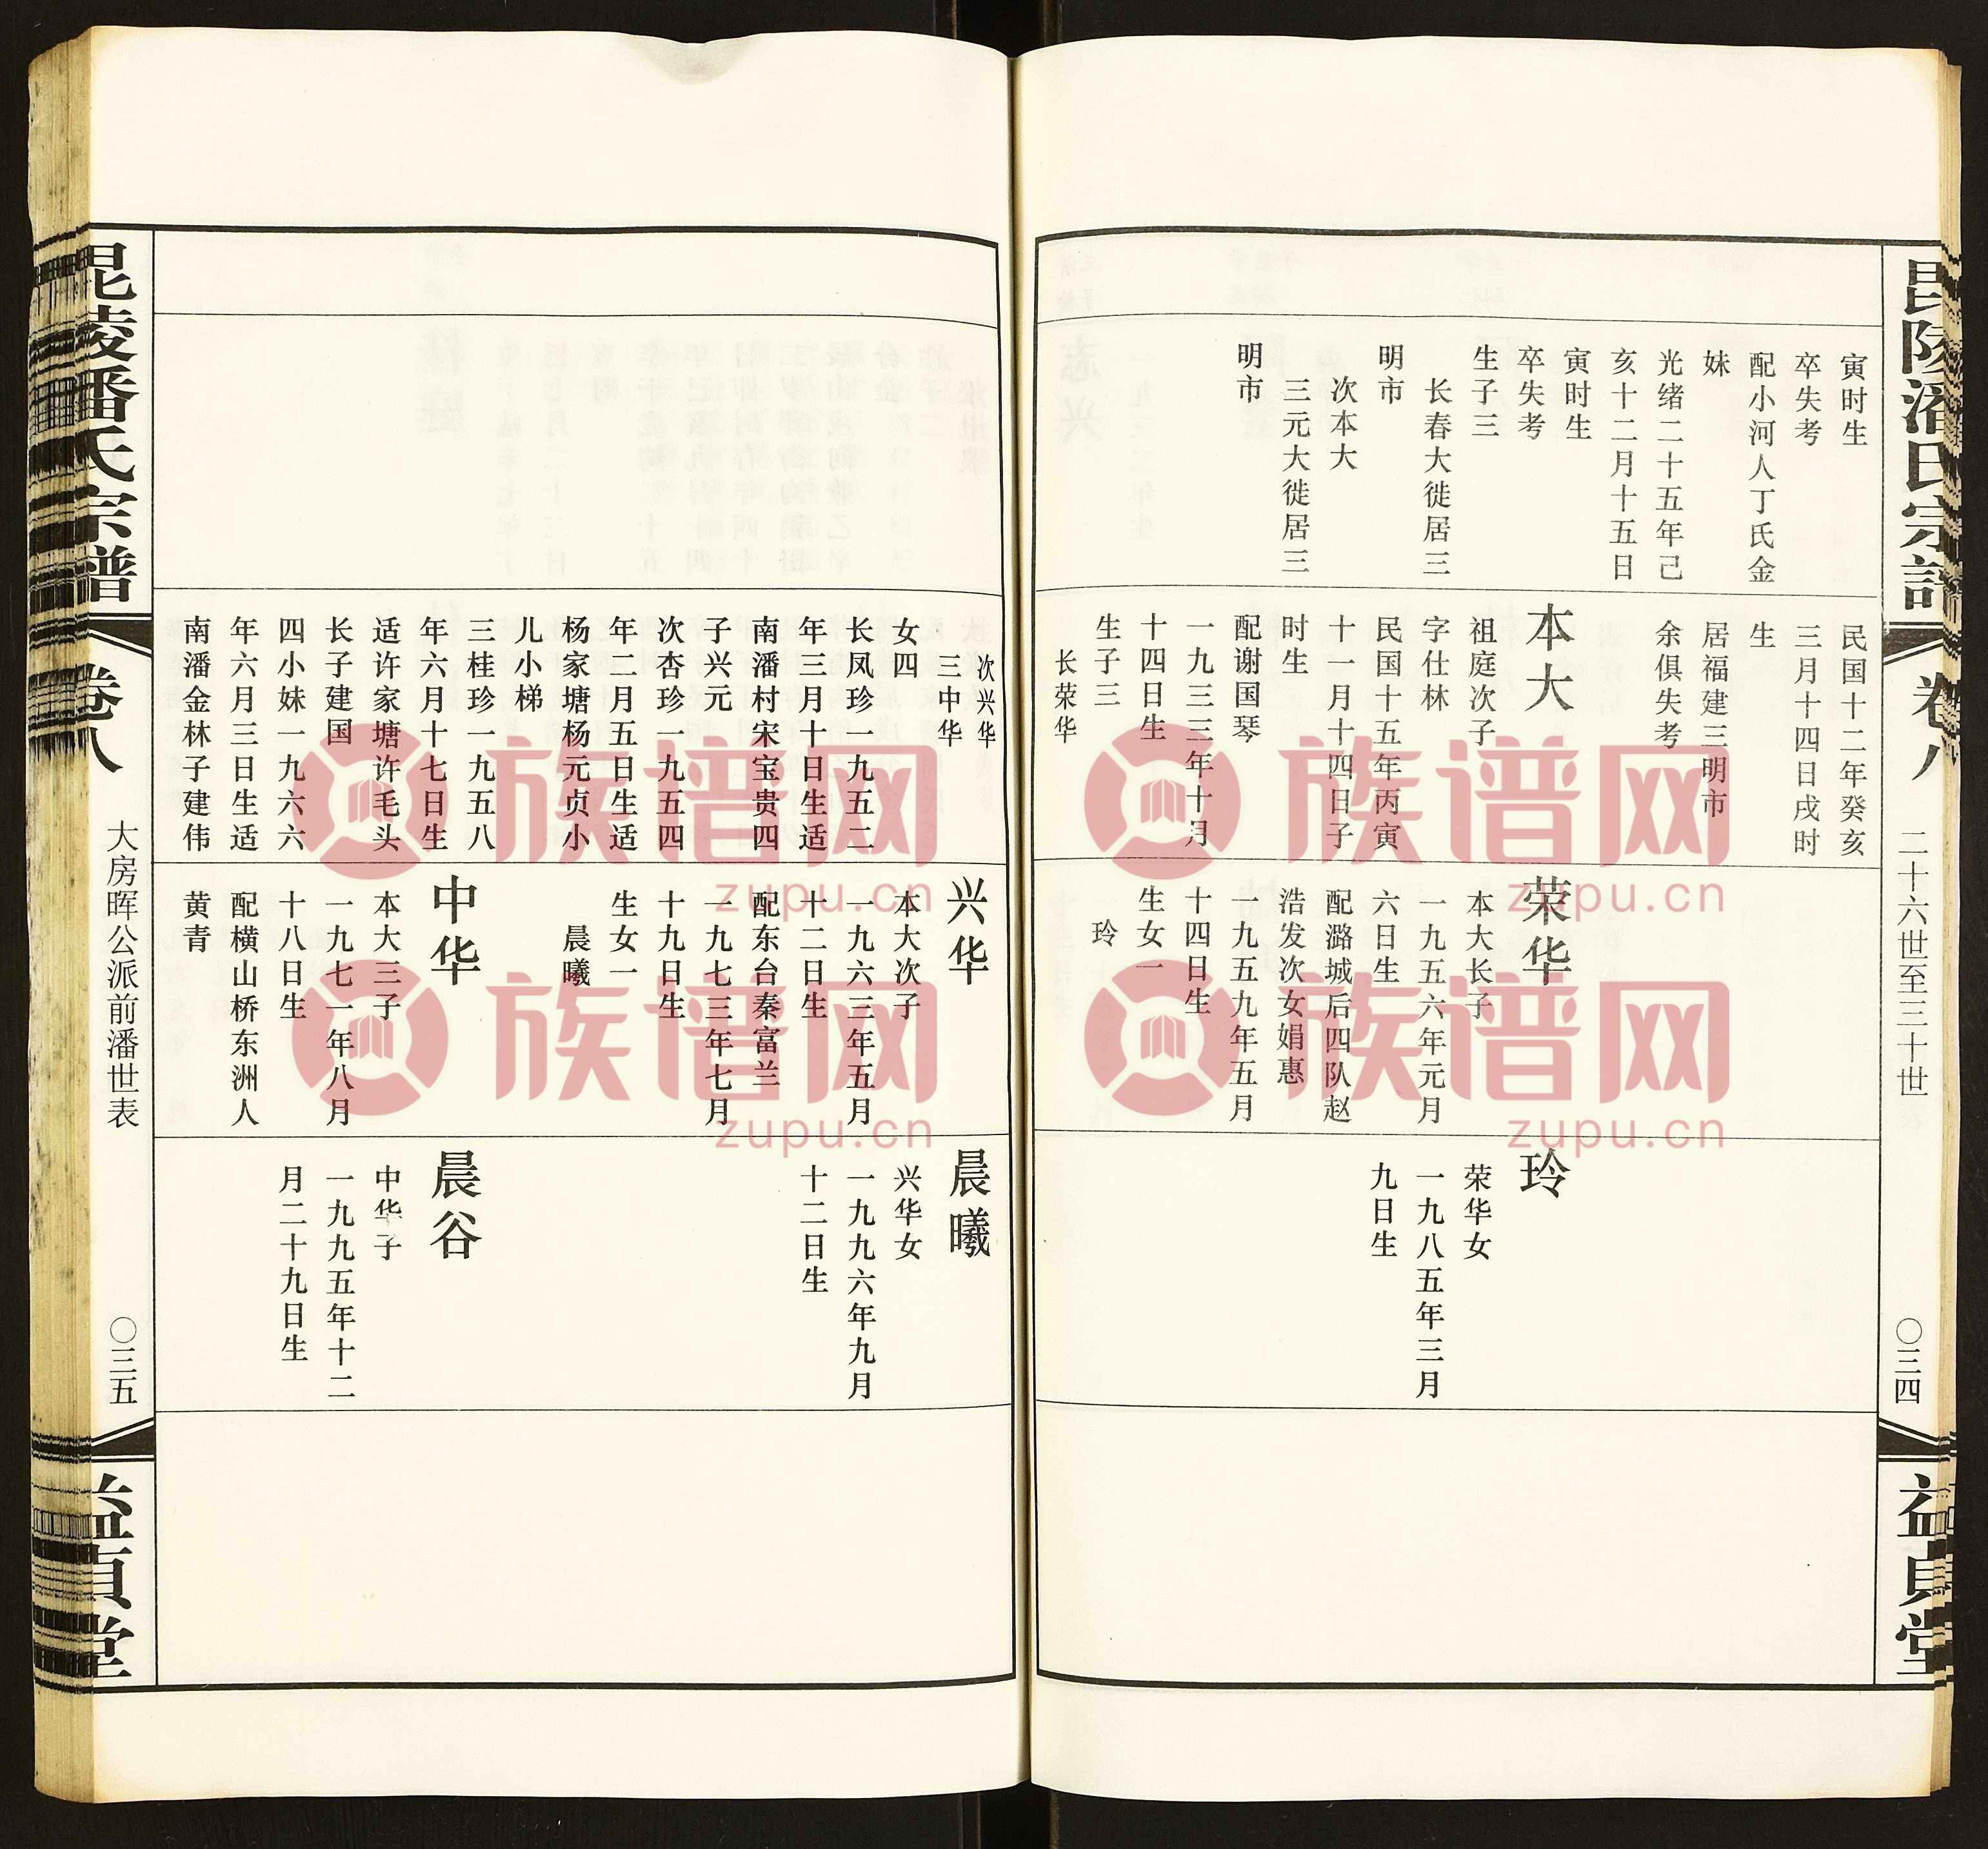 毘陵潘氏宗谱
卷八
二十六世至三十世
〇三四
益贞堂
寅时生
卒失考
配小河人丁氏金
妹
光绪二十五年己
亥十二月十五日
寅时生
卒失考
生子三
长春大徙居三
明市
次本大
三元大徙居三
明市
民国十二年癸亥
三月十四日戌时
生
居福建三明市
余俱失考
本大
祖庭次子
字仕林
民国十五年丙寅
十一月十四日子
时生
配谢国琴
一九三三年十月
十四日生
生子三
长荣华
荣华
本大长子
一九五六年元月
六日生
配潞城后四队赵
浩发次女娟惠
一九五九年五月
十四日生
生女一
玲
玲
荣华女
一九八五年三月
九日生
次兴华
三中华
女四
长凤珍一九五二
年三月十日生适
南潘村宋宝贵四
子兴元
次杏珍一九五四
年二月五日生适
杨家塘杨元贞小
儿小梯
三桂珍一九五八
年六月十七日生
适许家塘许毛头
长子建国
四小妹一九六六
年六月三日生适
南潘金林子建伟
兴华
本大次子
一九六三年五月
十二日生
配东台秦富兰
一九七三年七月
十九日生
生女一
晨曦
中华
本大三子
一九七一年八月
十八日生
配横山桥东洲人
黄青
晨曦
兴华女
一九九六年九月
十二日生
晨谷
中华子
一九九五年十二
月二十九日生
毘陵潘氏宗谱
卷八
大房晖公派前潘世表
〇三五
益贞堂
族谱网
zupu.cn
族谱网
zupu.cn
族谱网
zupu.cn
族谱网
zupu.cn